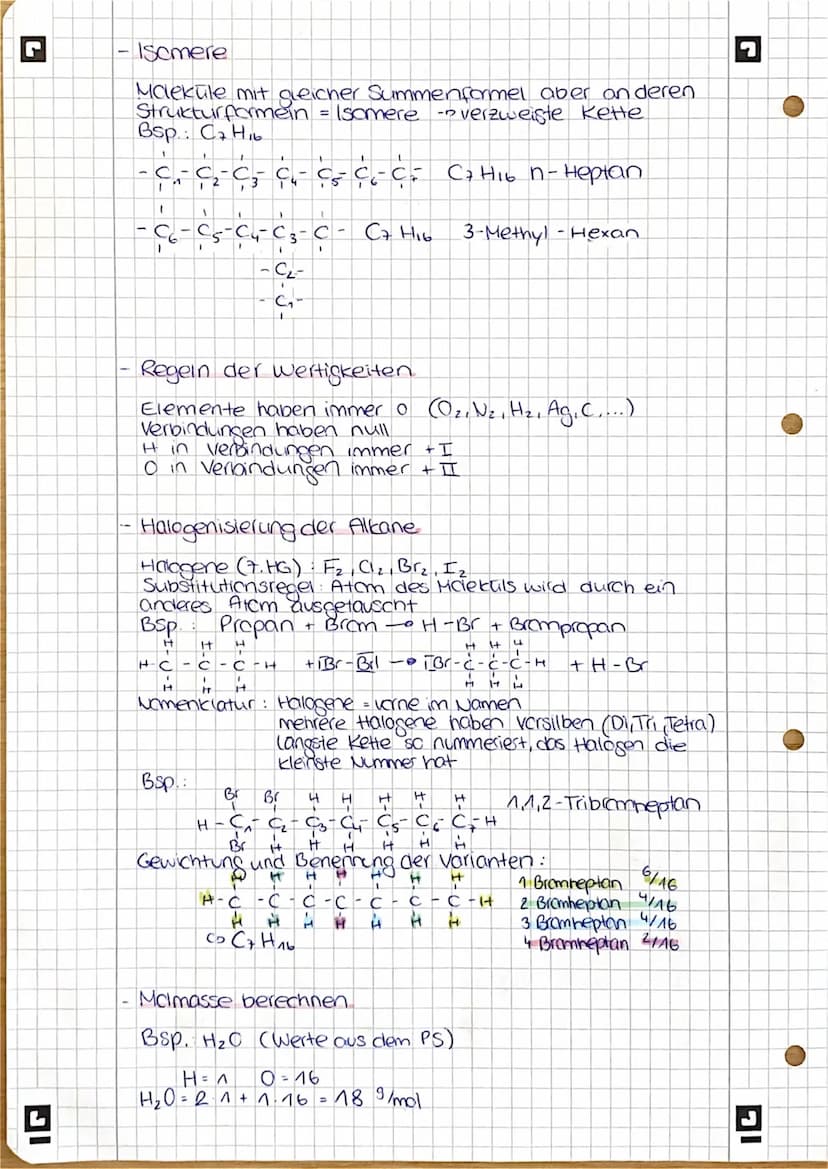 - Isomere
Moleküle mit gleicher Summenformel aber anderen
Strukturformeln = Isomere → verzweigte Kette
Bsp.: C₇H₁₆
- C₁ - C₂ - C₃ - C₄ - C₅ - C₆ - C₇ C₇H₁₆ n-Heptan
- C₆ - C₅ - C₄ - C₃ - C - C₇H₁₆ 3-Methyl-Hexan
- C₂ -
- C₁ -
- Regeln der Wertigkeiten
Elemente haben immer 0 (O₂, N₂, H₂, Ag, C, ...)
Verbindungen haben null
H in Verbindungen immer + I
O in Verbindungen immer + II
- Halogenisierung der Alkane
Halogene (7. HG): F₂, Cl₂, Br₂, I₂
Substitutionsregel: Atom des Moleküls wird durch ein
anderes Atom ausgetauscht
Bsp.: Propan + Brom → H-Br + Brompropan
H H H H H H
H - C - C - C - H + |Br - Br| → |Br - C - C - C - H + H - Br
H H H H H H
Nomenklatur: Halogene = vorne im Namen
mehrere Halogene haben Vorsilben (Di, Tri, Tetra)
längste Kette so nummeriest, das Halogen die
kleinste Nummer hat
Bsp.:
Br Br H H H H H 1,1,2-Tribromheptan
H - C₁ - C₂ - C₃ - C₄ - C₅ - C₆ - C₇ - H
Br H H H H H H
Gewichtung und Benennung der Varianten:
H H H H H H H 1 Bromheptan 6/16
H - C - C - C - C - C - C - C - H 2 Bromheptan 4/16
H H H H H H H 3 Bromheptan 4/16
↪ C₇H₁₆ 4 Bromheptan 2/16
- Molmasse berechnen
Bsp. H₂O (Werte aus dem PS)
H = 1 O = 16
H₂O = 2·1 + 1·16 = 18 g/mol